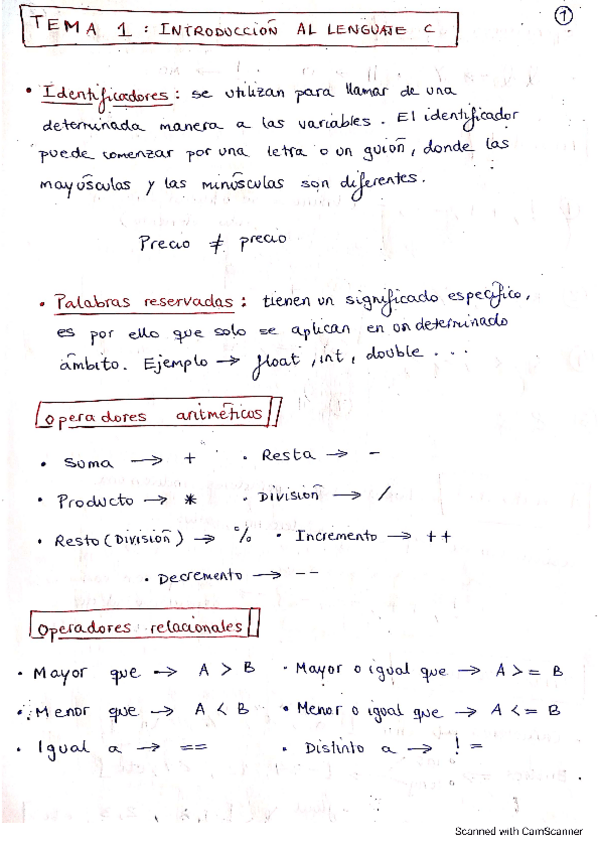 TEMA 1 : INTRODUCCIÓN AL LENGUAJE C
1
• Identificadores : se utilizan para llamar de una
determinada manera a las variables. El identificador
puede comenzar por una letra o un guión, donde las
mayúsculas y las minúsculas son diferentes.
Precio ≠ precio
• Palabras reservadas : tienen un significado específico,
es por ello que solo se aplican en un determinado
ámbito. Ejemplo → float , int , double . . .
Operadores aritméticos
• Suma → + • Resta → -
• Producto → * • División → /
• Resto (División) → % • Incremento → ++
• Decremento → --
Operadores relacionales
• Mayor que → A > B • Mayor o igual que → A >= B
• Menor que → A < B • Menor o igual que → A <= B
• Igual a → == • Distinto a → !=
Scanned with CamScanner